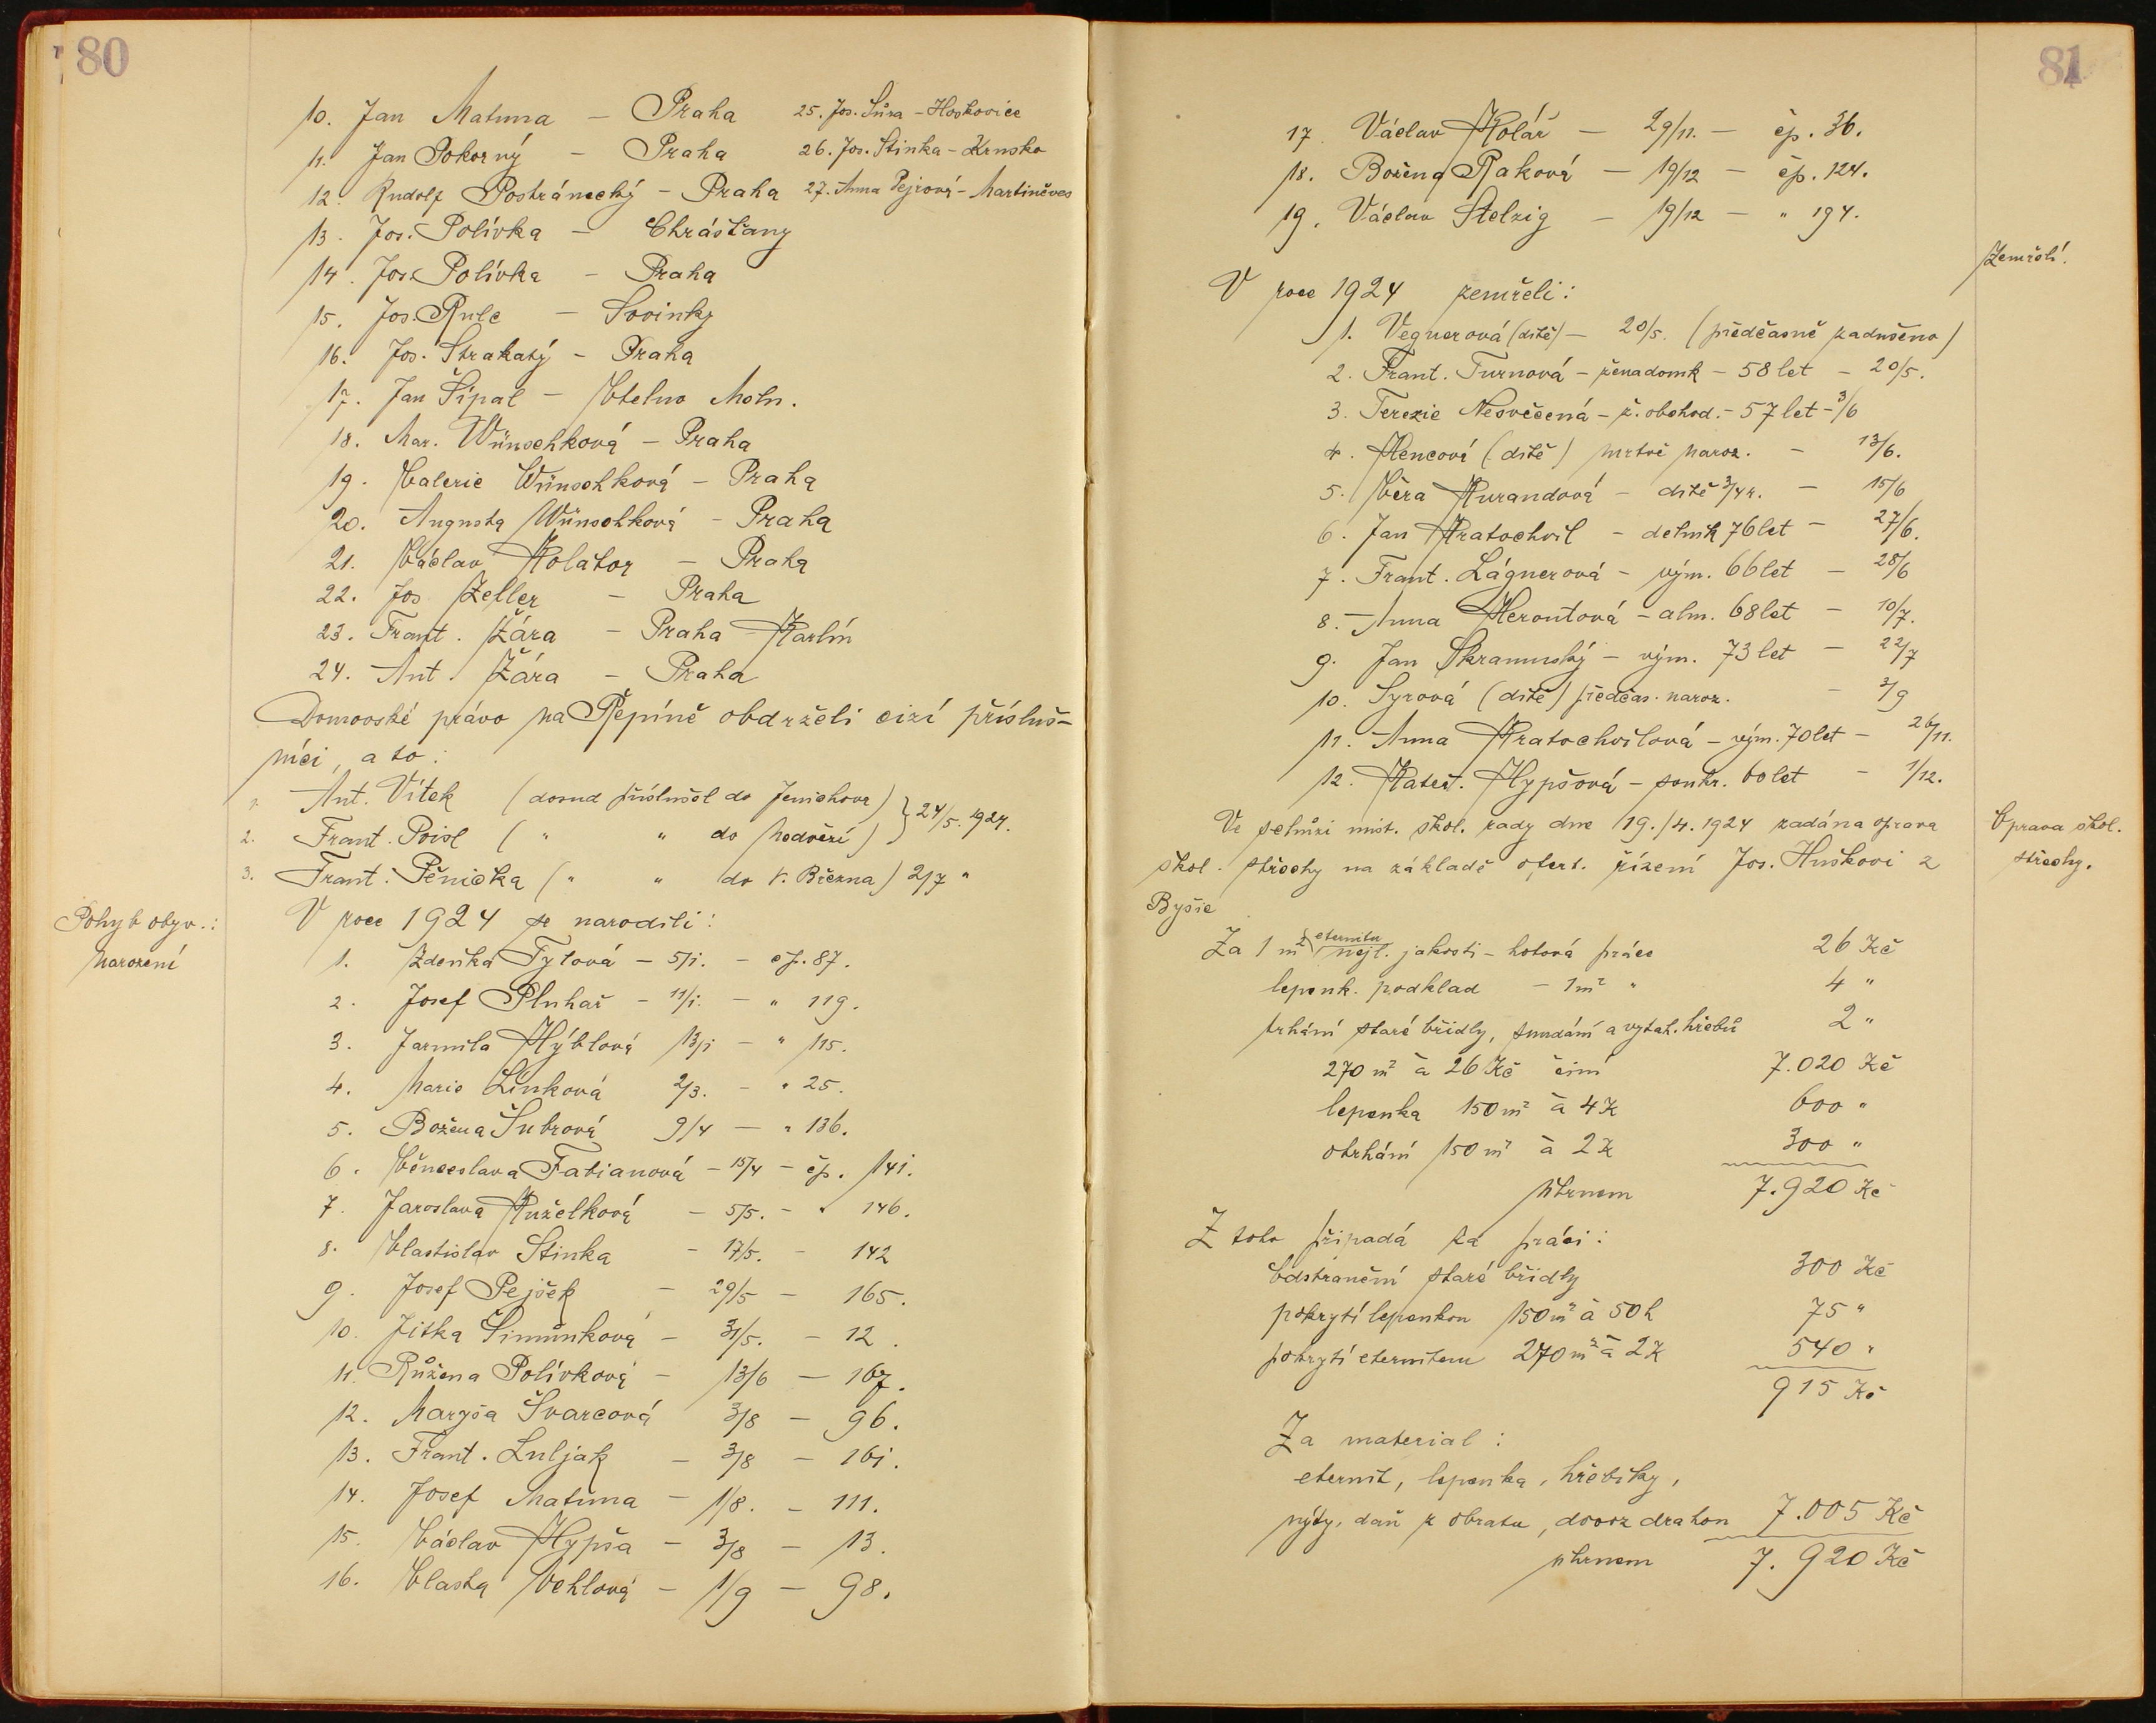 80
10. Jan Matuna — Praha 25. Jos. Šůra – Hoškovice
11. Jan Pokorný — Praha 26. Jos. Stinka – Krnsko
12. Rudolf Postránecký – Praha 27. Anna Pejrová – Martiněves
13. Jos. Polívka – Chrášťany
14. Jos. Polívka – Praha
15. Jos. Rulc – Sovinky
16. Jos. Strakatý – Praha
17. Jan Šípal – Vtelno Moln.
18. Mar. Wünschková – Praha
19. Valerie Wünschková – Praha
20. Augusta Wünschková – Praha
21. Václav Kolátor – Praha
22. Jos Zeller – Praha
23. Frant. Žára – Praha Karlín
24. Ant. Žára – Praha
Domovské právo na Řepíně obdrželi cizí přísluš-
níci, a to:
1. Ant. Vítek (dosud příslušel do Jenichova) } 24/5. 1924.
2. Frant. Poisl ( " " do Medvězí)
3. Frant. Pěnička ( " " do V. Března) 2/7 "
Pohyb obyv.:
Narození
V roce 1924 se narodili:
1. Zdeňka Tylová – 5/1. – čp. 87.
2. Josef Pluhař – 11/1. – " 119.
3. Jarmila Hýblová 13/1 – " 115.
4. Marie Linková 2/3. – " 25.
5. Božena Šubrová 9/4 — " 136.
6. Věnceslava Fabianová – 15/4 – čp. 141.
7. Jaroslava Kuželková – 5/5. – " 146.
8. Vlastislav Stinka – 17/5. – 142
9. Josef Pejšek – 29/5 – 165.
10. Jitka Šimůnková – 31/5. – 12.
11. Růžena Polívková – 13/6 – 167.
12. Maryša Švarcová 3/8 – 96.
13. Frant. Luljak – 3/8 – 161.
14. Josef Matuna – 1/8. – 111.
15. Václav Hypša – 3/8 – 13.
16. Vlasta Vehlová – 1/9 – 98.
81
17. Václav Kolář – 29/11. – čp. 36.
18. Božena Raková – 19/12 – čp. 124.
19. Václav Stelzig – 19/12 – " 194.
Zemřelí.
V roce 1924 zemřeli:
1. Vegnerová (dítě) – 20/5. (předčasně zadušeno)
2. Frant. Turnová – žena domk – 58 let – 20/5.
3. Terezie Nesvěcená – ž. obchod. – 57 let – 3/6
4. Hencová (dítě) mrtvě naroz. – 13/6.
5. Věra Kurandová – dítě 3/4 r. – 15/6
6. Jan Kratochvíl – dělník 76 let – 27/6.
7. Frant. Lágnerová – vým. 66 let – 28/6
8. Anna Heroutová – alm. 68 let – 10/7.
9. Jan Skramuský – vým. 73 let – 22/7
10. Syrová (dítě) předčas. naroz. – 3/9
11. Anna Kratochvílová – vým. 70 let – 26/11.
12. Kateř. Hypšová – soukr. 60 let – 1/12.
Ve schůzi míst. škol. rady dne 19./4. 1924 zadána oprava
škol. střechy na základě ofert. řízení Jos. Huškovi z
Byšic
Oprava škol.
střechy.
Za 1 m² eternitu nejl. jakosti – hotová práce 26 Kč
lepenk. podklad – 1 m² " 4 "
trhání staré břidly, sundání a vytah. hřebů 2 "
270 m² à 26 Kč činí 7.020 Kč
lepenka 150 m² à 4 K 600 "
otrhání 150 m² à 2 K 300 "
úhrnem 7.920 Kč
Z toho připadá za práci:
Odstranění staré břidly 300 Kč
pokrytí lepenkou 150 m² à 50 h 75 "
pokrytí eternitem 270 m² à 2 K 540 "
915 Kč
Za material:
eternit, lepenka, hřebíky,
nýty, daň z obratu, dovoz drahou 7.005 Kč
úhrnem 7.920 Kč